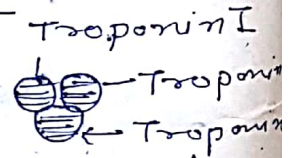 Troponin I
Troponin
Troponin